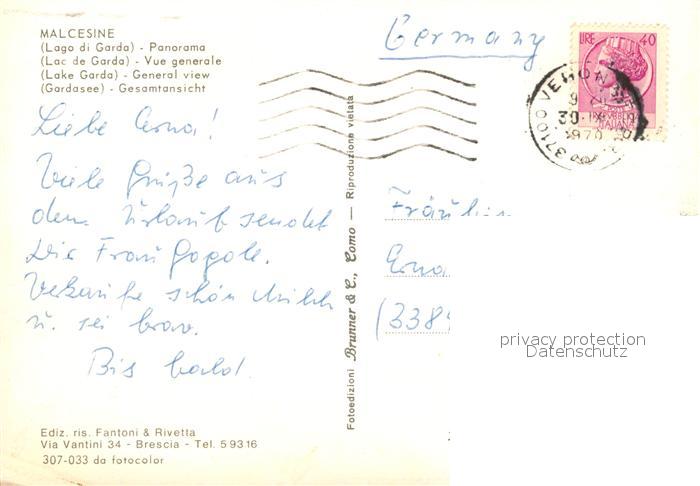 MALCESINE
(Lago di Garda) - Panorama
(Lac de Garda) - Vue generale
(Lake Garda) - General view
(Gardasee) - Gesamtansicht
Germany
LIRE 40
37100 VERONA
30.IX
1970
Liebe Erna!
Viele Grüße aus
dem Urlaub sendet
Dir Frau Gogole.
Verkaufe schön Milch
u. sei brav.
Bis bald.
Fräulein
Erna
(338
privacy protection
Datenschutz
Fotoedizioni Brunner & C., Como — Riproduzione vietata
Ediz. ris. Fantoni & Rivetta
Via Vantini 34 - Brescia - Tel. 59316
307-033 da fotocolor